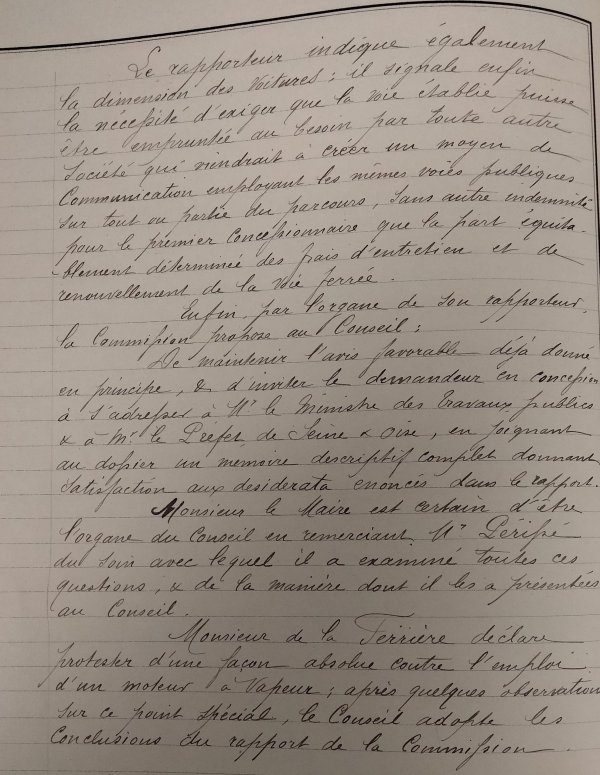 Le rapporteur indique également
la dimension des Voitures ; il signale enfin
la nécessité d'exiger que la voie établie puisse
être empruntée au besoin par toute autre
Société qui viendrait à créer un moyen de
Communication employant les mêmes voies publiques
sur tout ou partie du parcours, sans autre indemnité
pour le premier Concessionnaire que la part équita-
blement déterminée des frais d'entretien et de
renouvellement de la voie ferrée.
Enfin, par l'organe de son rapporteur,
la Commission propose au Conseil :
De maintenir l'avis favorable déjà donné
en principe, & d'inviter le demandeur en concession
à s'adresser à Mr le Ministre des Travaux publics
& à Mr le Préfet de Seine & Oise, en joignant
au dossier un mémoire descriptif complet donnant
Satisfaction aux desiderata énoncés dans le rapport.
Monsieur le Maire est certain d'être
l'organe du Conseil en remerciant Mr Périssé
du soin avec lequel il a examiné toutes ces
questions, & de la manière dont il les a présentées
au Conseil.
Monsieur de la Ferrière déclare
protester d'une façon absolue contre l'emploi
d'un moteur à Vapeur ; après quelques observation
sur ce point spécial, le Conseil adopte les
Conclusions du rapport de la Commission.